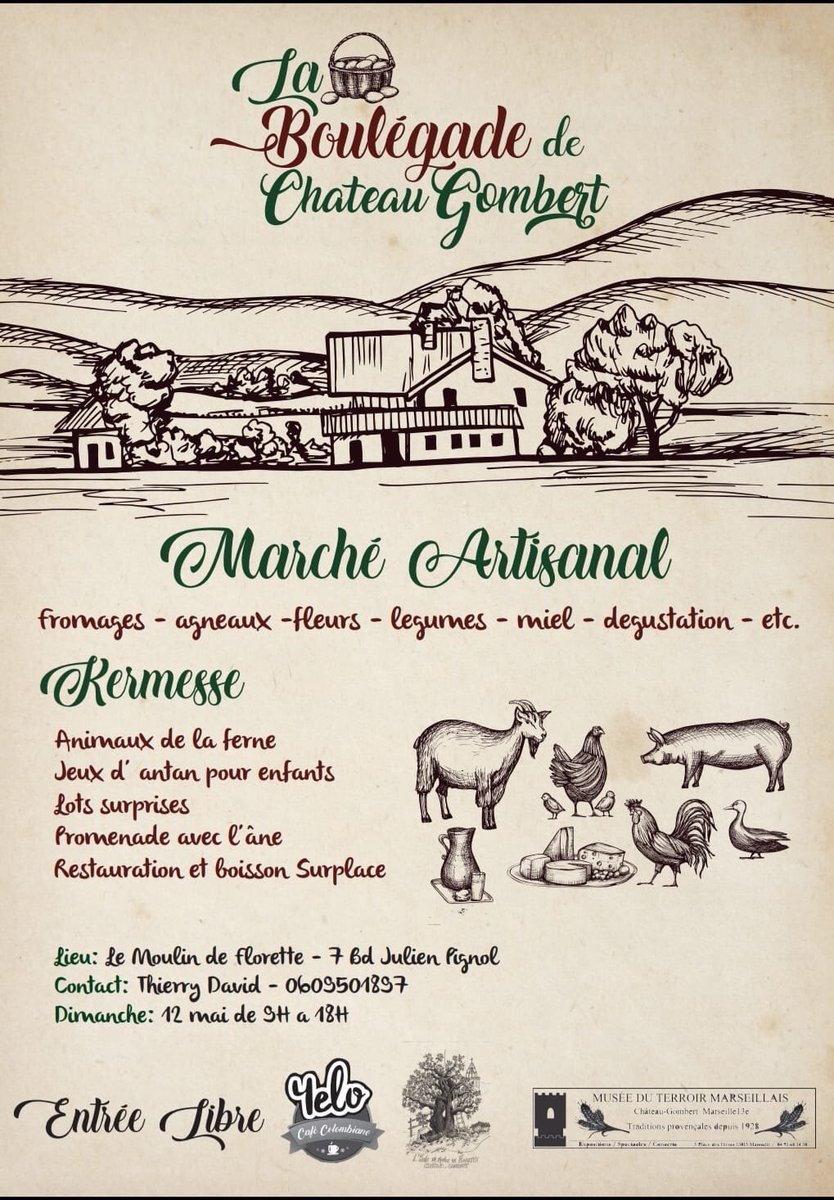 La
Boulégade de
Chateau Gombert
Marché Artisanal
fromages - agneaux -fleurs - legumes - miel - degustation - etc.
Kermesse
Animaux de la ferne
Jeux d' antan pour enfants
Lots surprises
Promenade avec l'âne
Restauration et boisson Surplace
Lieu: Le Moulin de Florette - 7 Bd Julien Pignol
Contact: Thierry David - 0609501897
Dimanche: 12 mai de 9H a 18H
Entrée Libre
Yelo
Café Colombiano
MUSÉE DU TERROIR MARSEILLAIS
Château-Gombert Marseille13e
Traditions provençales depuis 1928
Expositions / Spectacles / Concerts